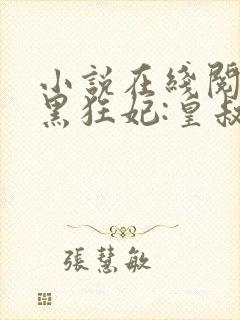 小說在綫閱
黑狂妃:皇叔
張慧敏